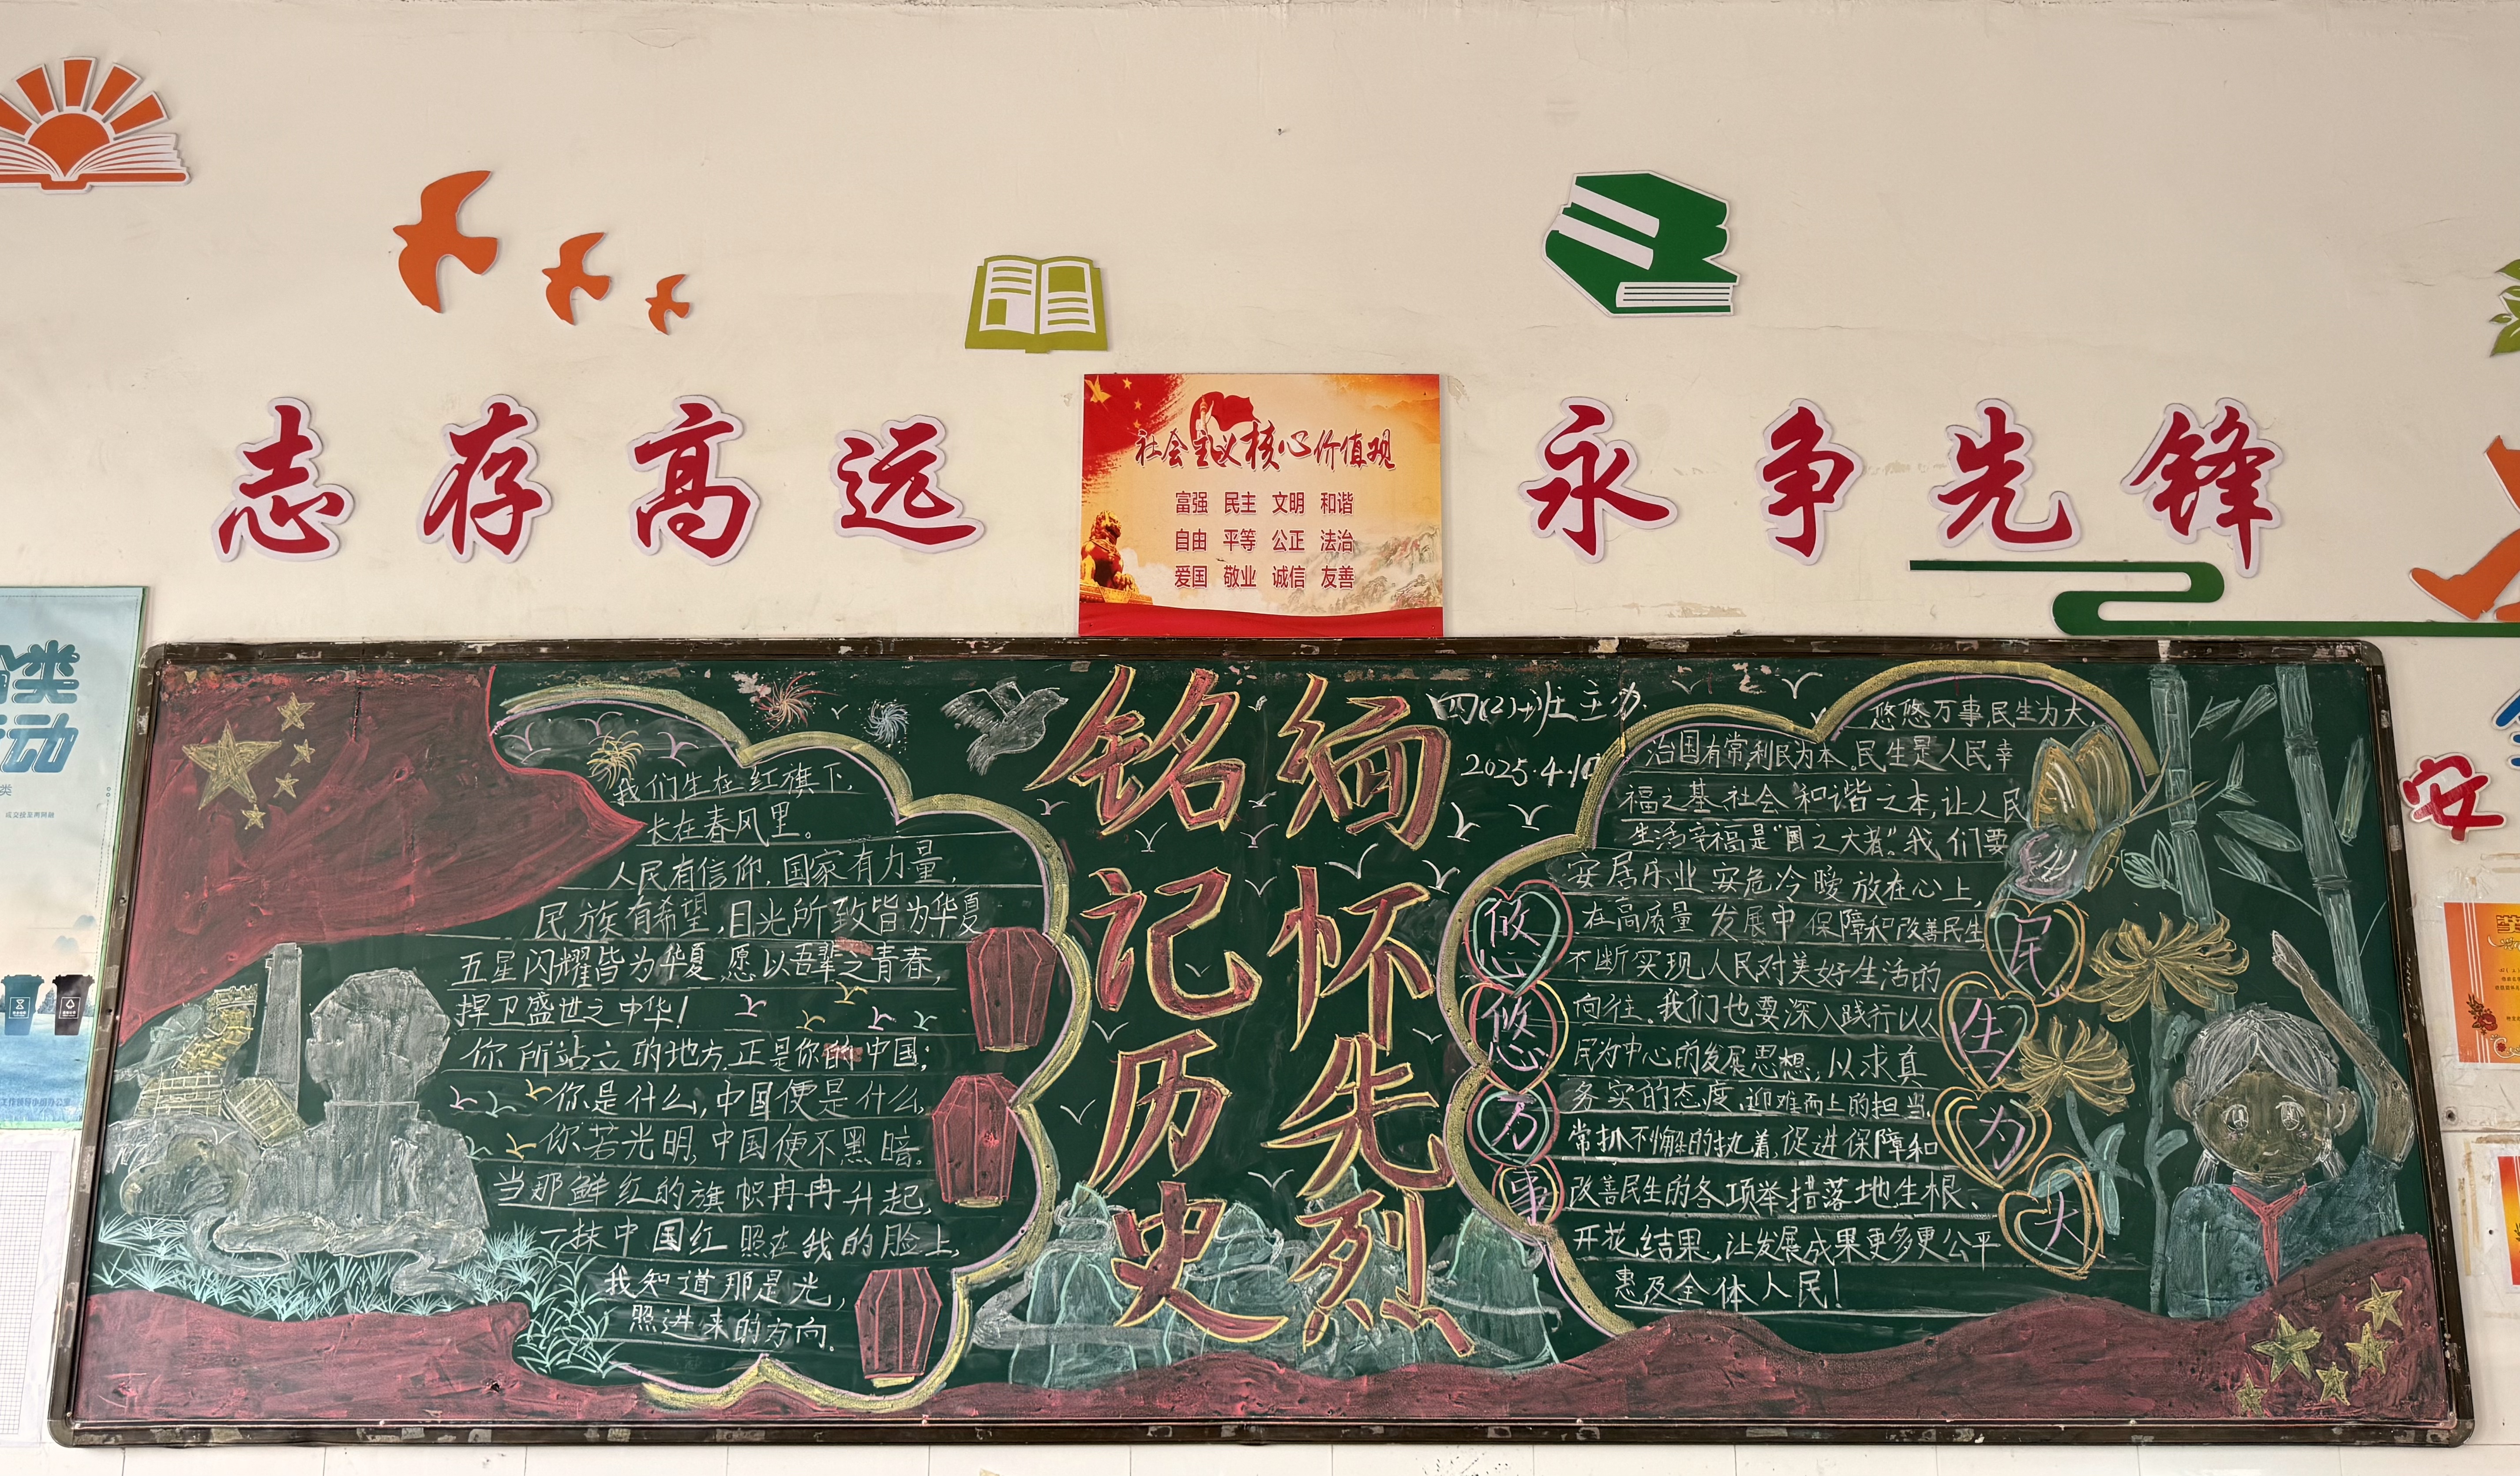 志存高远
社会主义核心价值观
富强 民主 文明 和谐
自由 平等 公正 法治
爱国 敬业 诚信 友善
永争先锋
类
动
类
安
铭记历史
缅怀先烈
四(2)班主办
2025.4.10
我们生在红旗下,
长在春风里。
人民有信仰,国家有力量,
民族有希望,目光所致皆为华夏
五星闪耀皆为华夏,愿以吾辈之青春,
捍卫盛世之中华!
你所站立的地方,正是你的中国;
你是什么,中国便是什么,
你若光明,中国便不黑暗。
当那鲜红的旗帜冉冉升起,
一抹中国红照在我的脸上,
我知道那是光,
照进来的方向.
悠悠万事
民生为大
悠悠万事民生为大,
治国有常,利民为本。民生是人民幸
福之基社会和谐之本,让人民
生活幸福是“国之大者”。我们要
安居乐业安危冷暖放在心上,
在高质量发展中保障和改善民生
不断实现人民对美好生活的
向往。我们也要深入践行以人
民为中心的发展思想,以求真
务实的态度,迎难而上的担当,
常抓不懈的执着,促进保障和
改善民生的各项举措落地生根、
开花结果,让发展成果更多更公平
惠及全体人民!